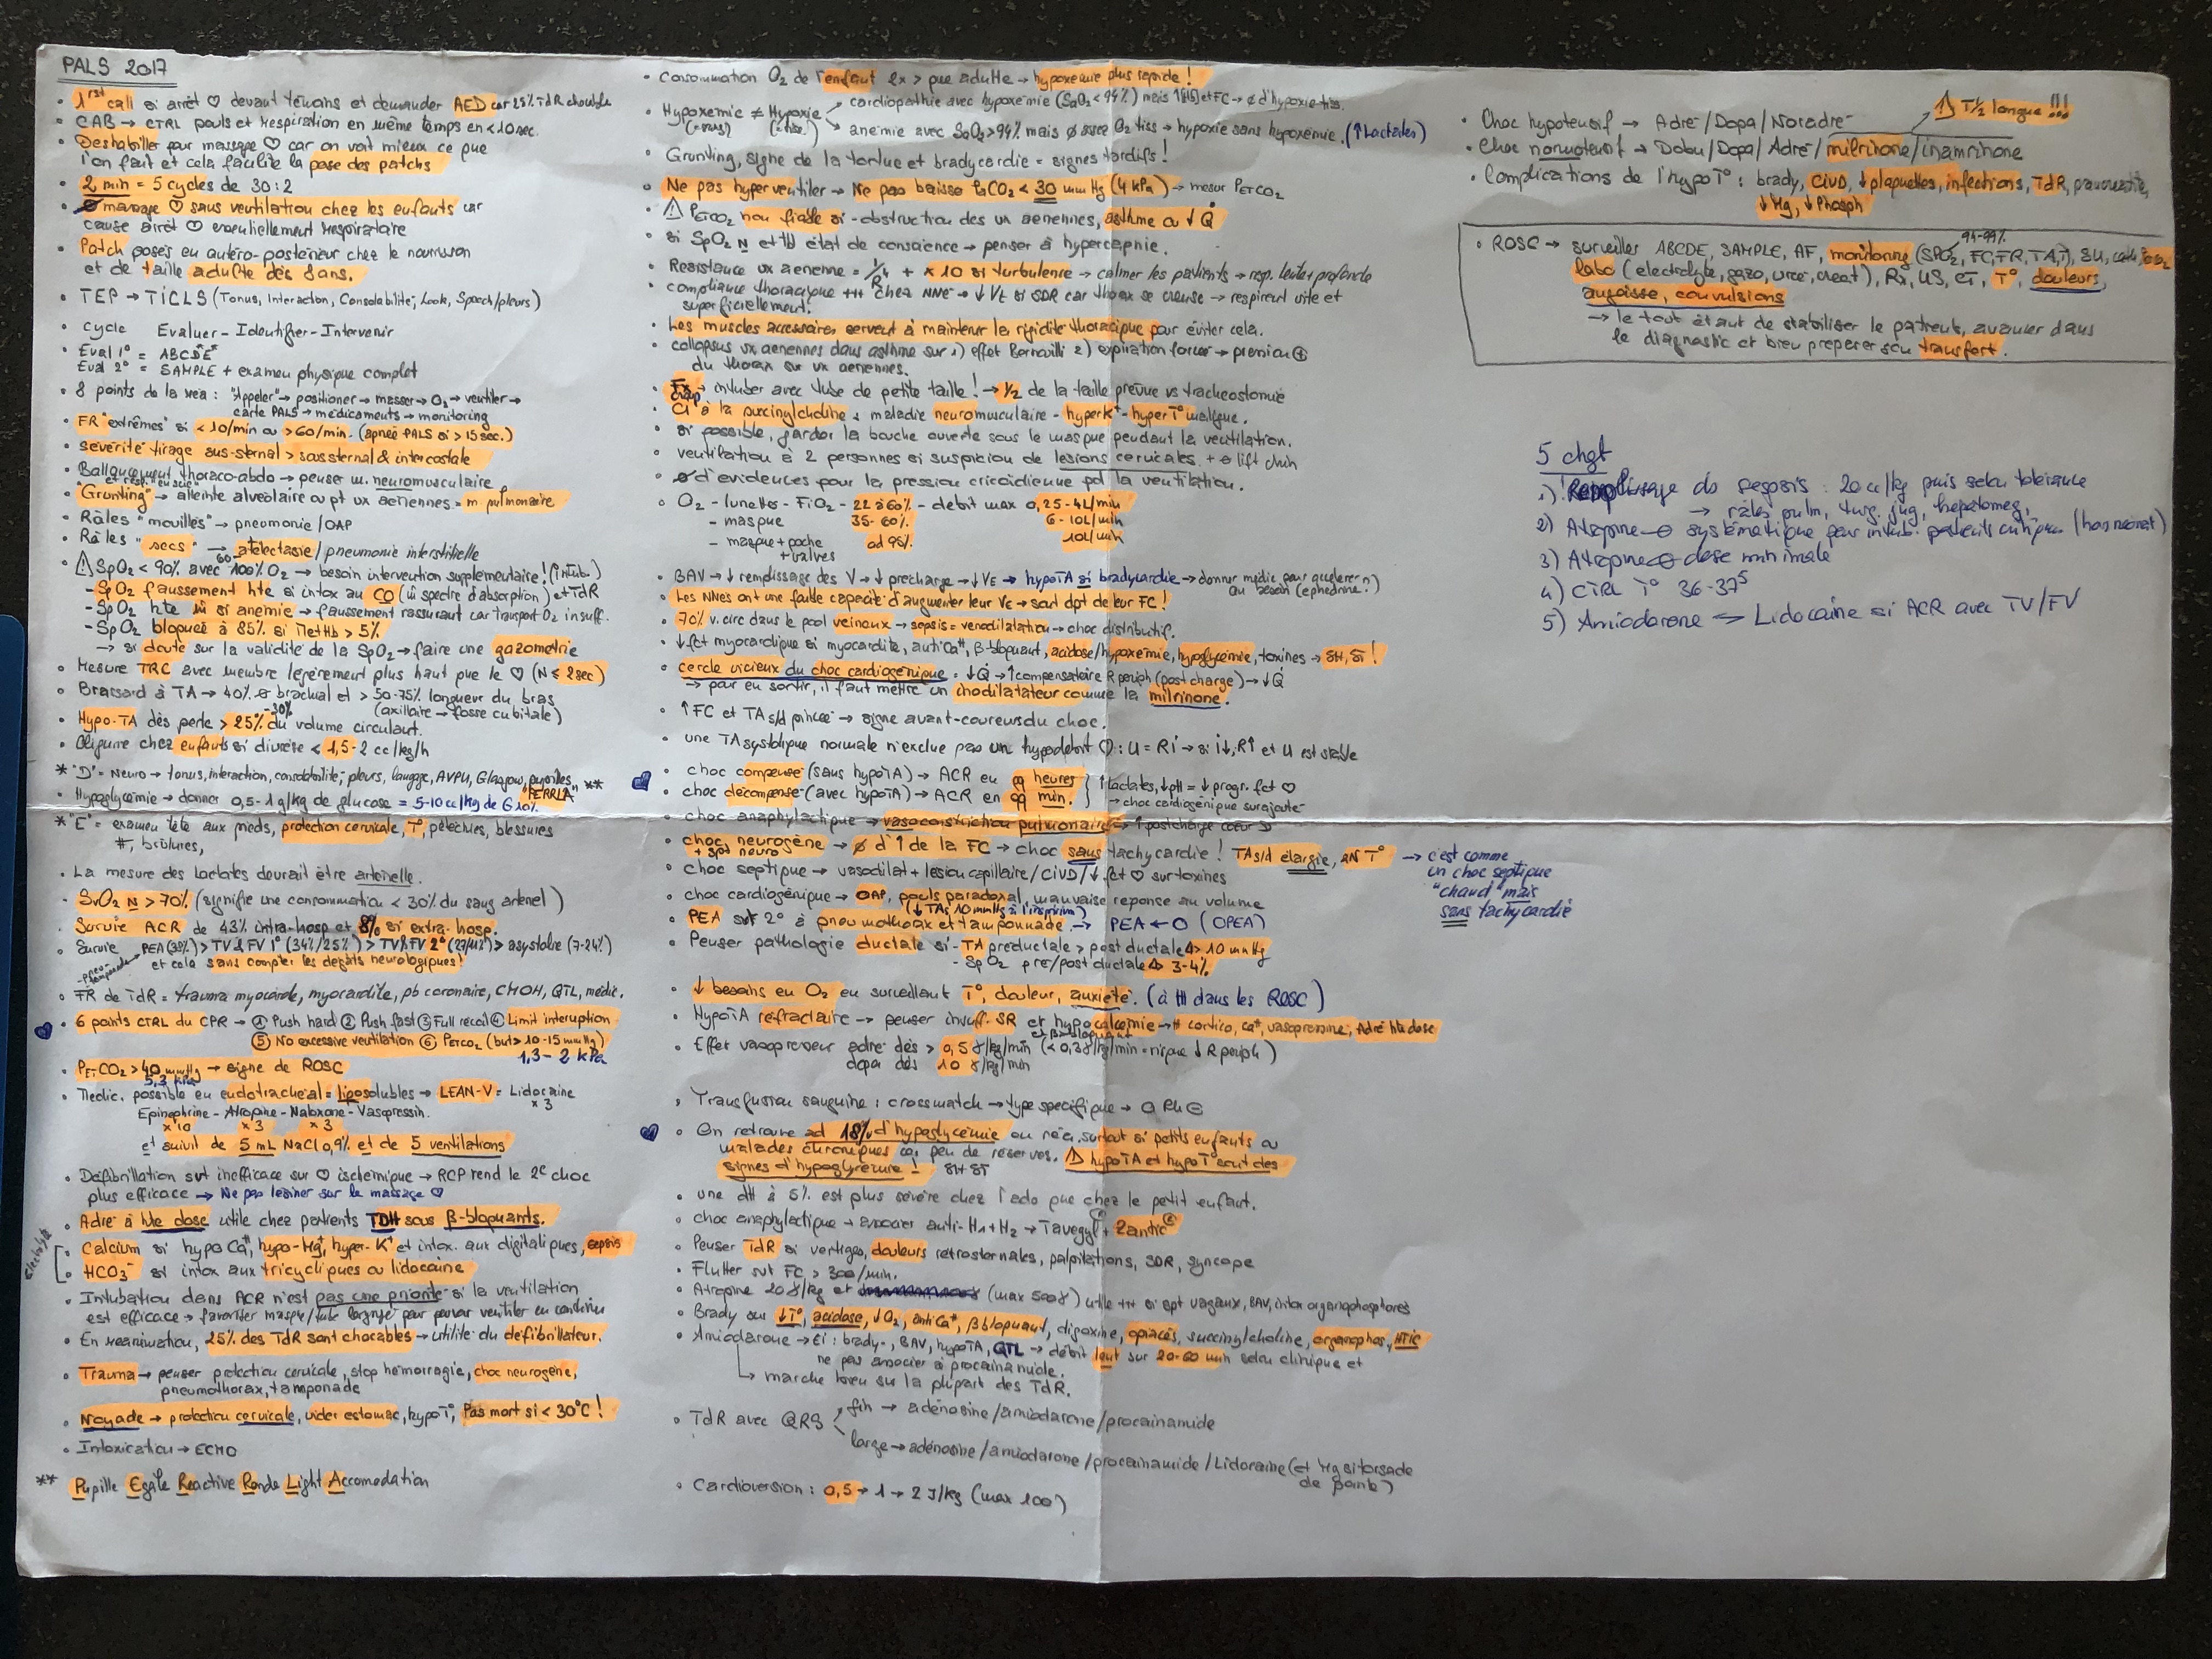 PALS 2017
• 1rst call si arrêt ♡ devant témoins et demander AED car 25% TdR choquable
• CAB → CTRL pouls et respiration en même temps en <10 sec.
• Deshabiller pour massage ♡ car on voit mieux ce que
l'on fait et cela facilite la pose des patchs
• 2 min = 5 cycles de 30:2
• Ø massage ♡ sans ventilation chez les enfants car
cause arrêt ♡ essentiellement respiratoire
• Patch posés en antéro-postérieur chez le nourrisson
et de taille adulte dès 8 ans.
• TEP → TICLS (Tonus, Interaction, Consolabilité, Look, Speech/pleurs)
• Cycle Evaluer - Identifier - Intervenir
• Eval 1° = ABCD*E*
Eval 2° = SAMPLE + examen physique complet
• 8 points de la réa : "Appeler" → positionner → masser → O2 → ventiler →
carte PALS → médicaments → monitoring
• FR "extrêmes" si <10/min ou >60/min. (apnée PALS si >15 sec.)
• sévérité tirage sus-sternal > sous sternal & intercostale
• Ballancement thoraco-abdo → penser m. neuromusculaire
• "Grunting" → atteinte alvéolaire ou pt vx aériennes = m pulmonaire
• Râles "mouillés" → pneumonie/OAP
• Râles "secs" → atélectasie/pneumonie interstitielle
• ⚠ SpO2 < 90% avec 100% O2 → besoin intervention supplémentaire! (intub.)
- SpO2 faussement hte si intox au CO (m̂ spectre d'absorption) et TdR
- SpO2 hte m̂ si anémie → faussement rassurant car transport O2 insuff.
- SpO2 bloquée à 85% si MetHb > 5%
→ si doute sur la validité de la SpO2 → faire une gazométrie
• Mesure TRC avec membre légèrement plus haut que le ♡ (N ≤ 2sec)
• Brassard à TA → 40% Ø brachial et > 50-75% longueur du bras
(axillaire → fosse cubitale)
• Hypo-TA dès perte > 25%-30% du volume circulant.
• Oligurie chez enfants si diurèse < 1,5-2 cc/kg/h
* "D" = Neuro → tonus, interaction, consolabilité, pleurs, langage, AVPU, Glasgow, pupilles "PERRLA" **
• Hypoglycémie → donner 0,5-1 g/kg de glucose = 5-10 cc/kg de G10%
* "E" = examen tête aux pieds, protection cervicale, T°, pétéchies, blessures
#, brûlures,
• La mesure des lactates devrait être artérielle.
• SvO2 N > 70% (signifie une consommation < 30% du sang artériel)
• Survie ACR de 43% intra-hosp et 8% si extra-hosp.
• Survie PEA (38%) > TV & FV 1° (34%/25%) > TV & FV 2° (27/11%) > asystolie (7-24%)
et cela sans compter les dégâts neurologiques!
• FR de TdR = trauma myocarde, myocardite, pb coronaire, CMOH, QTL, médic.
• 6 points CTRL du CPR → ① Push hard ② Push fast ③ Full recoil ④ Limit interuption
⑤ No excessive ventilation ⑥ PETCO2 (but > 10-15 mmHg)
1,3-2 kPa
• PETCO2 > 40 mmHg → signe de ROSC
5,3 kPa
• Médic. possible en endotrachéal = liposolubles → LEAN-V = Lidocaine
×3
Epinephrine - Atropine - Naloxone - Vasopressin.
×10 ×3 ×3
et suivit de 5 mL NaCl 0,9% et de 5 ventilations
• Défibrillation svt inefficace sur ♡ ischémique → RCP rend le 2e choc
plus efficace → Ne pas lésiner sur le massage ♡
• Adré à hte dose utile chez patients TDH sous β-bloquants.
• Calcium si hypo Ca++, hypo-Mg+, hyper-K+ et intox. aux digitaliques, sepsis
• HCO3- si intox aux tricycliques ou lidocaïne
• Intubation dans ACR n'est pas une priorité si la ventilation
est efficace → favoriser masque/tube laryngé pour pouvoir ventiler en continu
• En réanimation, 25% des TdR sont chocables → utilité du défibrillateur.
• Trauma → penser protection cervicale, stop hémorragie, choc neurogène,
pneumothorax, tamponade
• Noyade → protection cervicale, vider estomac, hypoT°, Pas mort si < 30°C!
• Intoxication → ECMO
** Pupille Egale Reactive Ronde Light Accomodation
• Consommation O2 de l'enfant 2x > que adulte → hypoxémie plus rapide!
• Hypoxémie ≠ Hypoxie
(= sang) (= tiss.)
cardiopathie avec hypoxémie (SaO2 < 94%) mais ↑[Hb] et FC → Ø d'hypoxie tiss.
anémie avec SaO2 > 94% mais Ø assez O2 tiss → hypoxie sans hypoxémie. (↑Lactates)
• Grunting, signe de la tortue et bradycardie = signes tardifs!
• Ne pas hyperventiler → Ne pas baisser PaCO2 < 30 mmHg (4 kPa) → mesur PETCO2
• ⚠ PETCO2 non fiable si - obstruction des vx aériennes, asthme ou ↓ Q̇
• si SpO2 N et ↓ état de conscience → penser à hypercapnie.
• Résistance vx aérienne = 1/R4 + ×10 si turbulence → calmer les patients → resp. lente + profonde
• compliance thoracique +++ chez NNé → ↓ VE si SDR car thorax se creuse → respirent vite et
superficiellement.
• Les muscles accessoires servent à maintenir la rigidité thoracique pour éviter cela.
• collapsus vx aériennes dans asthme sur 1) effet Bernoulli 2) expiration forcée → pression ⊕
du thorax sur vx aériennes.
• Fx croup → intuber avec tube de petite taille! → 1/2 de la taille prévue vs trachéostomie
• CI à la succinylcholine : maladie neuromusculaire - hyperK+ - hyperT° maligne.
• si possible, garder la bouche ouverte sous le masque pendant la ventilation.
• ventilation à 2 personnes si suspicion de lésions cervicales + ⊖ lift chin
• Ø d'évidences pour la pression cricoïdienne pdt la ventilation.
• O2 - lunettes - FiO2 - 22 à 60% - débit max 0,25-4L/min
- masque 35-60% 6-10L/min
- masque + poche ad 95% 10L/min
+ valves
• BAV → ↓ remplissage des V → ↓ précharge → ↓ VE → hypoTA si bradycardie → donner médic pour accélérer n)
au besoin (éphédrine?)
• Les NNés ont une faible capacité d'augmenter leur VE → sont dpt de leur FC!
• 70% v. circ dans le pool veineux → sepsis = vénodilatation → choc distributif.
• ↓ fct myocardique si myocardite, antiCa++, β-bloquant, acidose/hypoxémie, hypoglycémie, toxines → 5H, 5T!
• cercle vicieux du choc cardiogénique : ↓ Q̇ → ↑ compensatoire R périph (postcharge) → ↓ Q̇
→ pour en sortir, il faut mettre un inodilatateur comme la milrinone.
• ↑ FC et TA s/d pincée → signe avant-coureurs du choc.
• une TA systolique normale n'exclue pas un hypodébit ♡ : U = Ri → si i↓, R↑ et U est stable
• choc compensé (sans hypoTA) → ACR en qq heures
• choc décompensé (avec hypoTA) → ACR en qq min.
↑ Lactates, ↓pH = ↓ progr. fct ♡
→ choc cardiogénique surajouté
• choc anaphylactique → vasoconstriction pulmonaire → ↑ postcharge cœur D
• choc neurogène → Ø d'↑ de la FC → choc sans tachycardie! TA s/d élargie, N T° → c'est comme
+ spt neuro
un choc septique
"chaud" mais
sans tachycardie
• choc septique → vasodilat + lésion capillaire/CIVD/↓ fct ♡ sur toxines
• choc cardiogénique → OAP, pouls paradoxal, mauvaise réponse au volume
(↓ TAs 10 mmHg à l'inspirium)
• PEA svt 2° à pneumothorax et tamponnade. → PEA ← O (OPEA)
• Penser pathologie ductale si - TA préductale > post ductale Δ > 10 mmHg
- SpO2 pré/post ductale Δ 3-4%
• ↓ besoins en O2 en surveillant T°, douleur, anxiété. (à ttt dans les ROSC)
• HypoTA réfractaire → penser insuff. SR et hypocalcémie → # cortico, Ca++, vasopressine, Adré hte dose
et β-bloquant
• Effet vasopresseur adré dès > 0,5 γ/kg/min (< 0,3 γ/kg/min = risque ↓ R périph)
dopa dès 10 γ/kg/min
• Transfusion sanguine : crossmatch → type spécifique → O Rh⊖
• On retrouve ad 18% d'hypoglycémie en réa, surtout si petits enfants ou
malades chroniques car peu de réserves. ⚠ hypoTA et hypoT° sont des
signes d'hypoglycémie! 5H 5T
• une dH à 5% est plus sévère chez l'ado que chez le petit enfant.
• choc anaphylactique → associer anti-H1+H2 → Tavegyl® + Zantic®
• Penser TdR si vertiges, douleurs rétrosternales, palpitations, SDR, syncope
• Flutter svt FC > 300/min.
• Atropine 20γ/kg et (max 500γ) utile ttt si spt vagaux, BAV, intox organophosphorés
• Brady sur ↓T°, acidose, ↓O2, antiCa++, βbloquant, digoxine, opiacés, succinylcholine, organophos, HTIC
• Amiodarone → EI : brady-, BAV, hypoTA, QTL → débit lent sur 20-60 min selon clinique et
ne pas associer à procaïnamide.
↳ marche bien sur la plupart des TdR.
• TdR avec QRS fin → adénosine/amiodarone/procaïnamide
large → adénosine/amiodarone/procaïnamide/Lidocaine (et Mg si torsade
de pointe)
• Cardioversion : 0,5 → 1 → 2 J/kg (max 100)
⚠ T1/2 longue!!!
• Choc hypotensif → Adré/Dopa/Noradré
• Choc normotensif → Dobu/Dopa/Adré/milrinone/inamrinone
• Complications de l'hypoT° : brady, CIVD, ↓ plaquettes, infections, TdR, pancréatite,
↓Mg, ↓Phosph
94-99%
• ROSC → surveiller ABCDE, SAMPLE, AF, monitoring (SPO2, FC, FR, TA, T), SU,
labo (électrolyte, gazo, urée, créat), Rx, US, CT, T°, douleurs,
angoisse, convulsions
→ le tout étant de stabiliser le patient, avancer dans
le diagnostic et bien préparer son transfort.
5 chgt
1) Remplissage ds sepsis : 20 cc/kg puis selon tolérance
→ râles pulm, turg. jug, hépatomeg,
2) Atropine ⊖ systématique pour intub. patients critiques (hors néonat)
3) Atropine ⊖ dose minimale
4) CTRL T° 36-37⁵
5) Amiodarone ⇔ Lidocaïne si ACR avec TV/FV